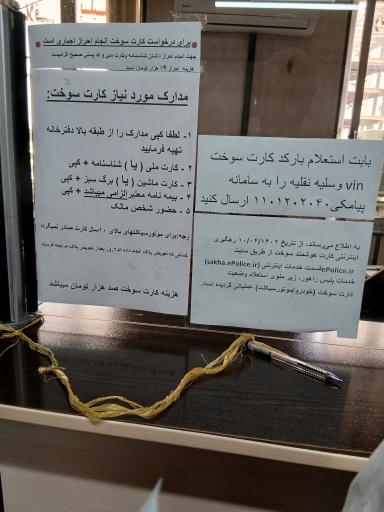 برای درخواست کارت سوخت انجام احراز اجباری است
جهت انجام احراز داشتن شناسنامه وکارت ملی و کد پستی صحیح الزامیست
هزینه احراز ۷۹ هزار تومان است
مدارک مورد نیاز کارت سوخت:
۱- لطفا کپی مدارک را از طبقه بالا دفترخانه
تهیه فرمایید
۲ - کارت ملی ( یا ) شناسنامه + کپی
۳ - کارت ماشین ( یا ) برگ سبز + کپی
۴ - بیمه نامه معتبرالزامی میباشد + کپی
۵ - حضور شخص مالک
وجه:برای موتورسیکلتهای بالای ۱۰سال کارت صادر نمیگردد
کسانی که تعویض پلاک انجام داده اند روز بعداز تعویض پلاک مراجعه فرمایند
هزینه کارت سوخت صد هزار تومان میباشد
بابت استعلام بارکد کارت سوخت
vin وسیله نقلیه را به سامانه
پیامکی ۱۱۰۱۲۰۲۰۴۰ ارسال کنید
به اطلاع می‌رساند، از تاریخ ۱۴۰۲/۰۴/۱۰ رهگیری
اینترنتی کارت هوشمند سوخت از طریق سایت
ePolice.ir قسمت خدمات اینترنتی (sakha.ePolice.ir)
خدمات پلیس راهور، زیر منوی استعلام وضعیت
کارت سوخت (خودرو/موتورسیکلت) عملیاتی گردیده است.